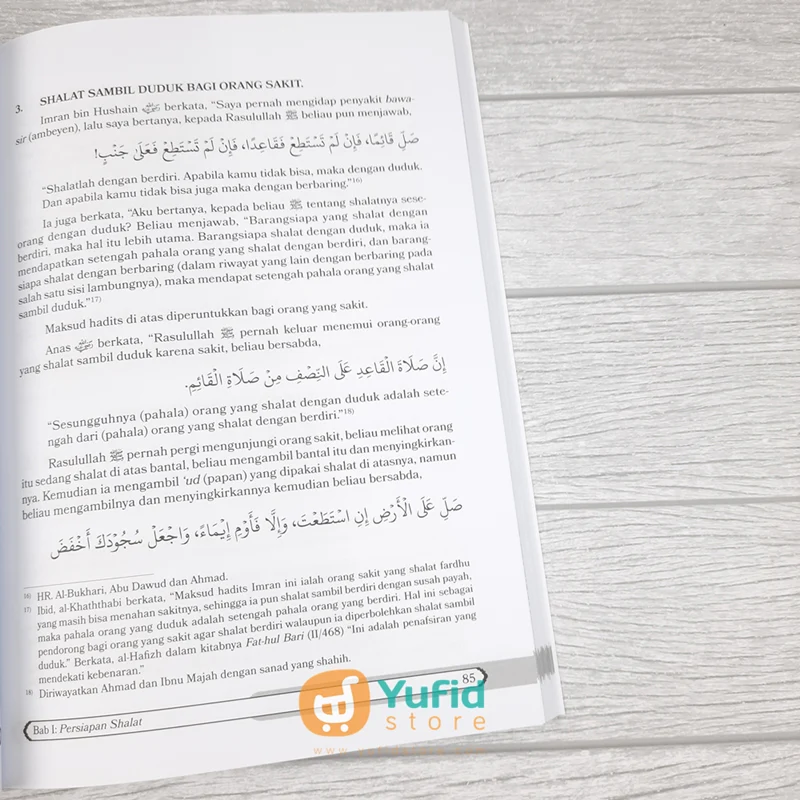 3. SHALAT SAMBIL DUDUK BAGI ORANG SAKIT.
Imran bin Hushain berkata, "Saya pernah mengidap penyakit bawa-
sir (ambeyen), lalu saya bertanya, kepada Rasulullah ﷺ beliau pun menjawab,
صَلِّ قَائِمًا، فَإِنْ لَمْ تَسْتَطِعْ فَقَاعِدًا، فَإِنْ لَمْ تَسْتَطِعْ فَعَلَى جَنْبٍ!
"Shalatlah dengan berdiri. Apabila kamu tidak bisa, maka dengan duduk.
Dan apabila kamu tidak bisa juga maka dengan berbaring."16)
Ia juga berkata, "Aku bertanya, kepada beliau ﷺ tentang shalatnya sese-
orang dengan duduk? Beliau menjawab, "Barangsiapa yang shalat dengan
berdiri, maka hal itu lebih utama. Barangsiapa shalat dengan duduk, maka ia
mendapatkan setengah pahala orang yang shalat dengan berdiri, dan barang-
siapa shalat dengan berbaring (dalam riwayat yang lain dengan berbaring pada
salah satu sisi lambungnya), maka mendapat setengah pahala orang yang shalat
sambil duduk."17)
Maksud hadits di atas diperuntukkan bagi orang yang sakit.
Anas berkata, "Rasulullah ﷺ pernah keluar menemui orang-orang
yang shalat sambil duduk karena sakit, beliau bersabda,
إِنَّ صَلَاةَ الْقَاعِدِ عَلَى النِّصْفِ مِنْ صَلَاةِ الْقَائِمِ.
"Sesungguhnya (pahala) orang yang shalat dengan duduk adalah sete-
ngah dari (pahala) orang yang shalat dengan berdiri."18)
Rasulullah ﷺ pernah pergi mengunjungi orang sakit, beliau melihat orang
itu sedang shalat di atas bantal, beliau mengambil bantal itu dan menyingkirkan-
nya. Kemudian ia mengambil 'ud (papan) yang dipakai shalat di atasnya, namun
beliau mengambilnya dan menyingkirkannya kemudian beliau bersabda,
صَلِّ عَلَى الْأَرْضِ إِنِ اسْتَطَعْتَ، وَإِلَّا فَأَوْمِ إِيْمَاءً، وَاجْعَلْ سُجُوْدَكَ أَخْفَضَ
16) HR. Al-Bukhari, Abu Dawud dan Ahmad.
17) Ibid, al-Khaththabi berkata, "Maksud hadits Imran ini ialah orang sakit yang shalat fardhu
yang masih bisa menahan sakitnya, sehingga ia pun shalat sambil berdiri dengan susah payah,
maka pahala orang yang duduk adalah setengah pahala orang yang berdiri. Hal ini sebagai
pendorong bagi orang yang sakit agar shalat berdiri walaupun ia diperbolehkan shalat sambil
duduk." Berkata, al-Hafizh dalam kitabnya Fat-hul Bari (II/468) "Ini adalah penafsiran yang
mendekati kebenaran."
18) Diriwayatkan Ahmad dan Ibnu Majah dengan sanad yang shahih.
85
Bab I: Persiapan Shalat
Yufid
store